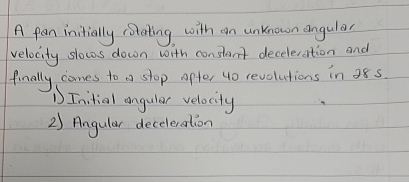 A fan initially rotating with an unknown angular
velocity slows down with constant deceleration and
finally comes to a stop after 40 revolutions in 28 s.
1) Initial angular velocity
2) Angular deceleration